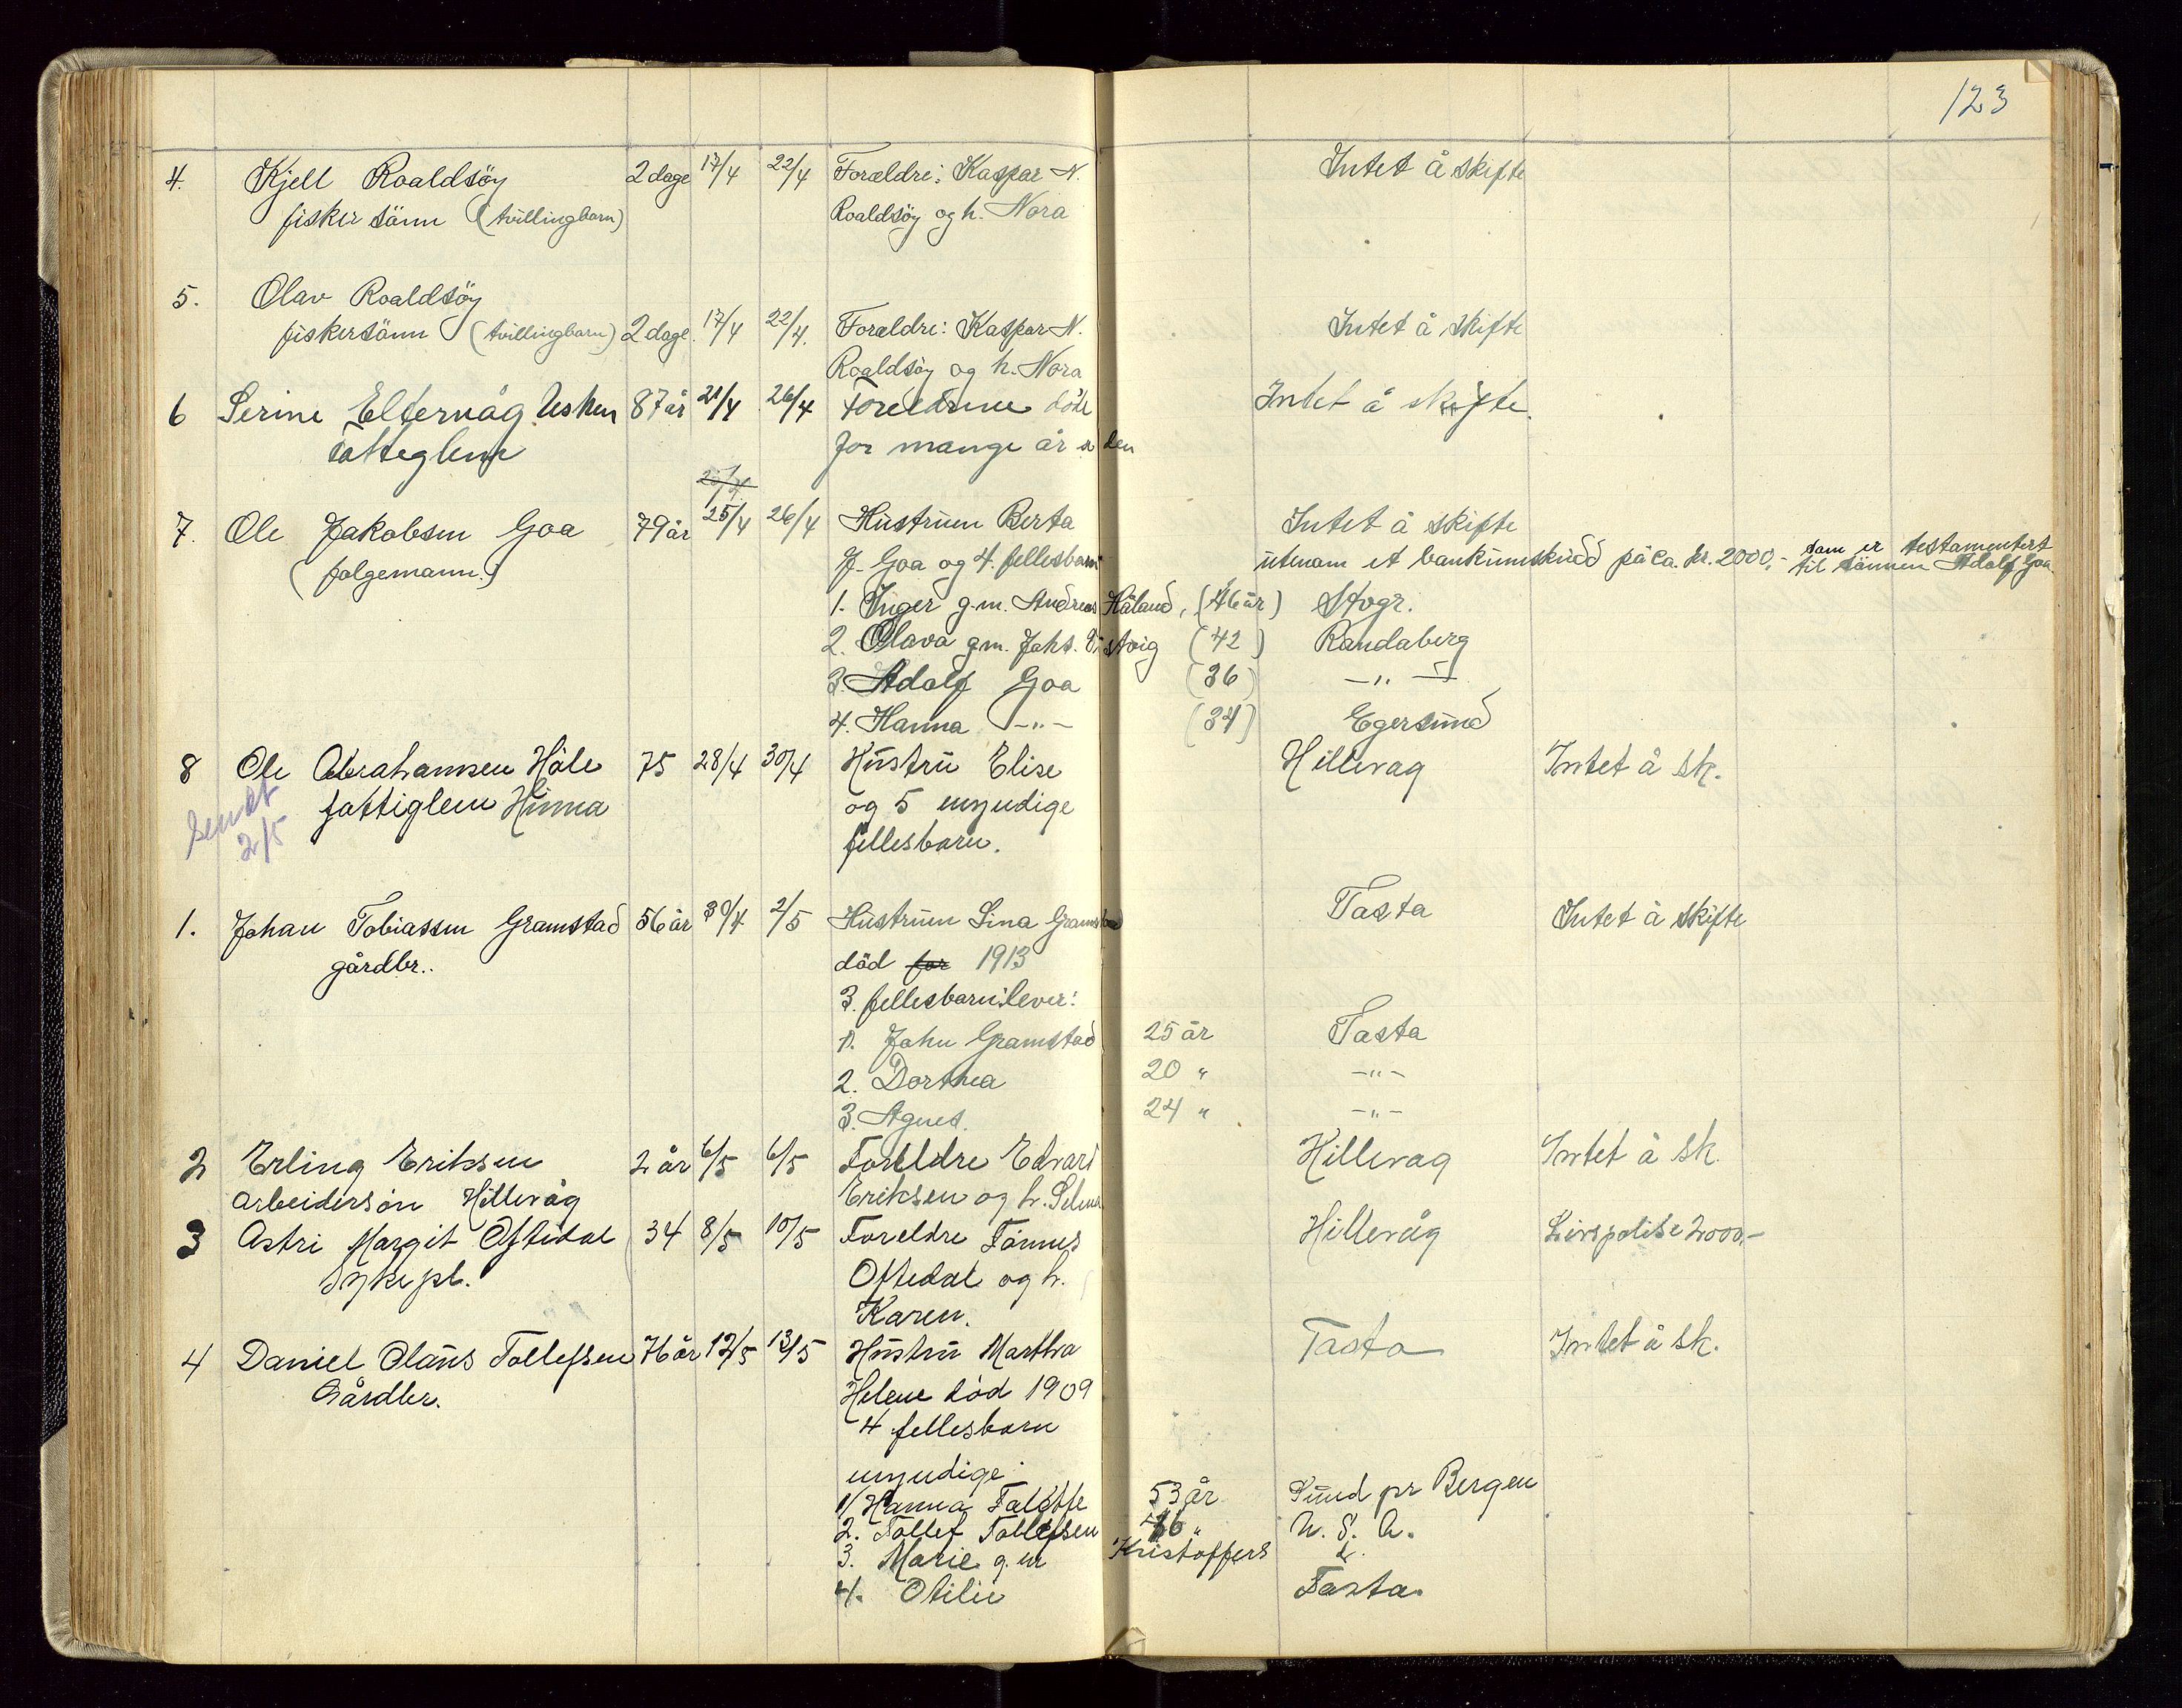 123
4. Kjell Roaldsöy 2 dage 17/4 22/4 Forældre: Kaspar N. Intet å skifte
fisker sönn (tvillingbarn) Roaldsöy og h. Nora
5. Olav Roaldsöy
fiskersönn (tvillingbarn) 2 dage. 17/4 22/4. Forældre: Kaspar N. Intet å skifte
Roaldsöy og h. Nora
6 Serine Eltervåg Usken 87 år 21/4 26/4 Foreldrene döde Intet å skifte
fatteglem for mange år siden
25/4
7. Ole Jakobsen Goa 79 år 25/4 26/4 Hustruen Berta Intet å skifte
(folgemann.) J. Goa og 4. fellesbarn utenom et bankinnskudd på ca. kr. 2000,- som er testamentert
til sönnen Adolf Goa.
1. Inger g.m. Andreas Håland, (46 år) Stvgr.
2. Olava g.m. Johs. Vistvig (42) Randaberg
3. Adolf Goa (36) -"-
4. Hanna -"- (34) Egersund
8 Ole Abrahamsen Håle 75 28/4 30/4 Hustru Elise Hillevag Intet å sk.
Sendt 2/5
fattiglem Hinna og 5 myndige
fellesbarn.
1. Johan Tobiassen Gramstad 56 år 30/4 2/5 Hustruen Sina Gramstad Tasta Intet å skifte
gårdbr.. död for 1913
3. fellesbarn lever:
1. John Gramstad 25 år Tasta
2. Dorthea 20 " -"-
3. Agnes. 24 " -"-
2 Erling Eriksen 2 år 6/5 6/5 Foreldre Edvard Hillevag Intet å sk.
arbeidersön Hillevåg Eriksen og h. Selma
3 Astri Margit Oftedal 34 8/5 10/5 Foreldre Tönnes Hillevåg Livspolise 2000,-
Sykepl. Oftedal og h.
Karen.
4 Daniel Olaus Tollefsen 76 år 12/5 13/5 Hustru Martha Tasta Intet å sk.
Gårdbr. Helene död 1909
4 fellesbarn
myndige
1/ Hanna 53 år Sund pr Bergen
2. Tollef Tollefsen 46 " U. S. A.
3. Marie g.m Kristoffers d.
4. Otilie Tasta.